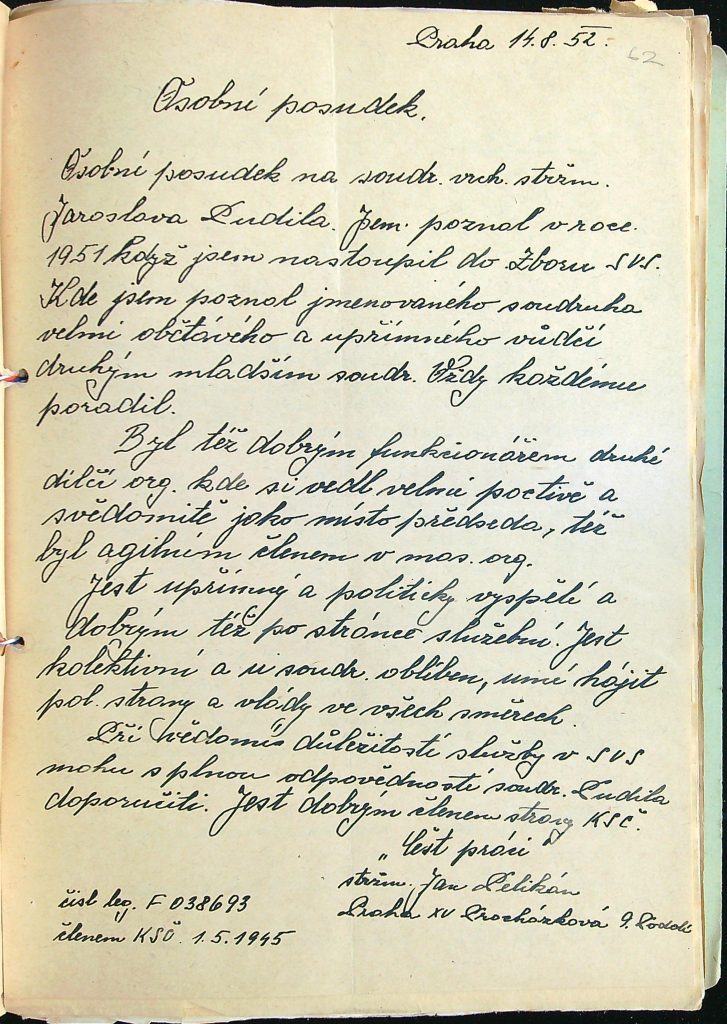 Praha 14.8.52.
62
Osobní posudek.
Osobní posudek na soudr. vrch. stržm.
Jaroslava Pudila. Jsem poznal v roce.
1951 když jsem nastoupil do Zboru SVS.
Kde jsem poznal jmenovaného soudruha
velmi občtávého a upřímného vůdčí
druhým mladším soudr. Vždy každému
poradil.
Byl též dobrým funkcionářem druhé
dilčí org. kde si vedl velmi poctivě a
svědomitě jako místo předseda, též
byl agilním členem v mas. org.
Jest upřímný a politicky vyspělí a
dobrým též po stránce služební. Jest
kolektivní a u soudr. oblíben, umí hájit
pol. strany a vlády ve všech směrech.
Při vědomí důležitostí služby v SVS
mohu s plnou odpovědností soudr. Pudila
doporučiti. Jest dobrým členem strany KSČ.
„Čest práci"
stržm. Jan Pelikán
Praha XV Procházková 9. Podolí
čisl leg. F 038693
členem KSČ. 1.5.1945